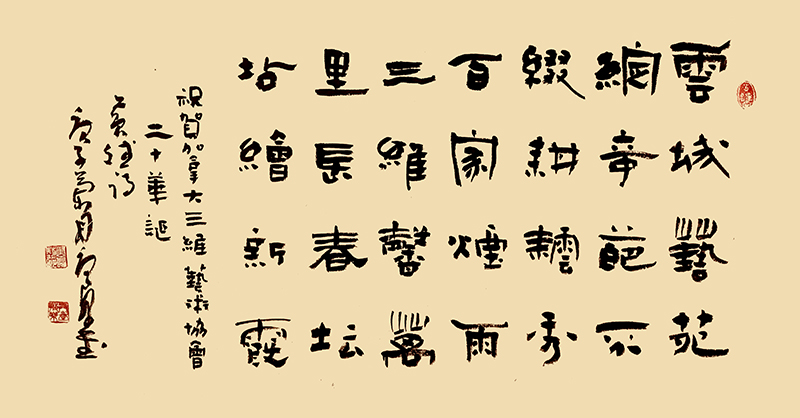 雲城藝苑
綻奇葩不
綴耕耘秀
百家煙雨
三維馨萬
里長春坛
站繪新霞
祝賀加拿大三維藝術協會
二十華誕
庚子